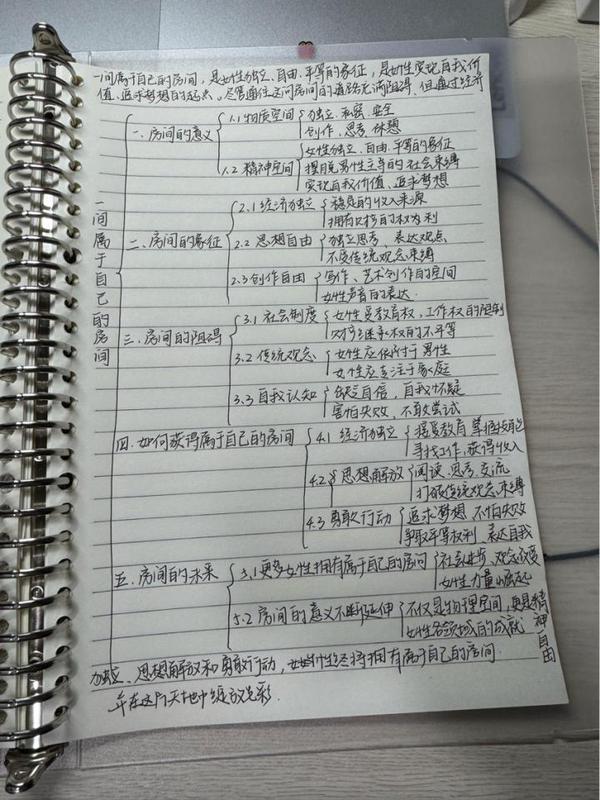 一间属于自己的房间，是女性独立、自由、平等的象征，是女性实现自我价
值、追求梦想的起点。尽管通往这间房间的道路充满阻碍，但通过经济
一间属于自己的房间
一、房间的意义
1.1 物质空间
独立、私密、安全
创作、思考、休憩
1.2 精神空间
女性独立、自由、平等的象征
摆脱男性主导的社会束缚
实现自我价值、追求梦想
二、房间的象征
2.1 经济独立
稳定的收入来源
拥有支配的权力
2.2 思想自由
独立思考、表达观点
不受传统观念束缚
2.3 创作自由
写作、艺术创作的空间
女性声音的表达
三、房间的阻碍
3.1 社会制度
女性受教育权，工作权的限制
财产继承权的不平等
3.2 传统观念
女性应依附于男性
女性应专注于家庭
3.3 自我认知
缺乏自信，自我怀疑
害怕失败，不敢尝试
四、如何获得属于自己的房间
4.1 经济独立
接受教育 掌握技能
寻找工作，获得收入
4.2 思想解放
阅读、思考、交流
打破传统观念束缚
4.3 勇敢行动
追求梦想，不怕失败
争取平等权利，表达自我
五、房间的未来
5.1 更多女性拥有属于自己的房间
社会进步、观念改变
女性力量崛起
5.2 房间的意义不断延伸
不仅是物理空间，更是精神自由
女性各领域的成就
独立、思想解放和勇敢行动，女性们终将拥有属于自己的房间.
并在这片天地中绽放光彩.